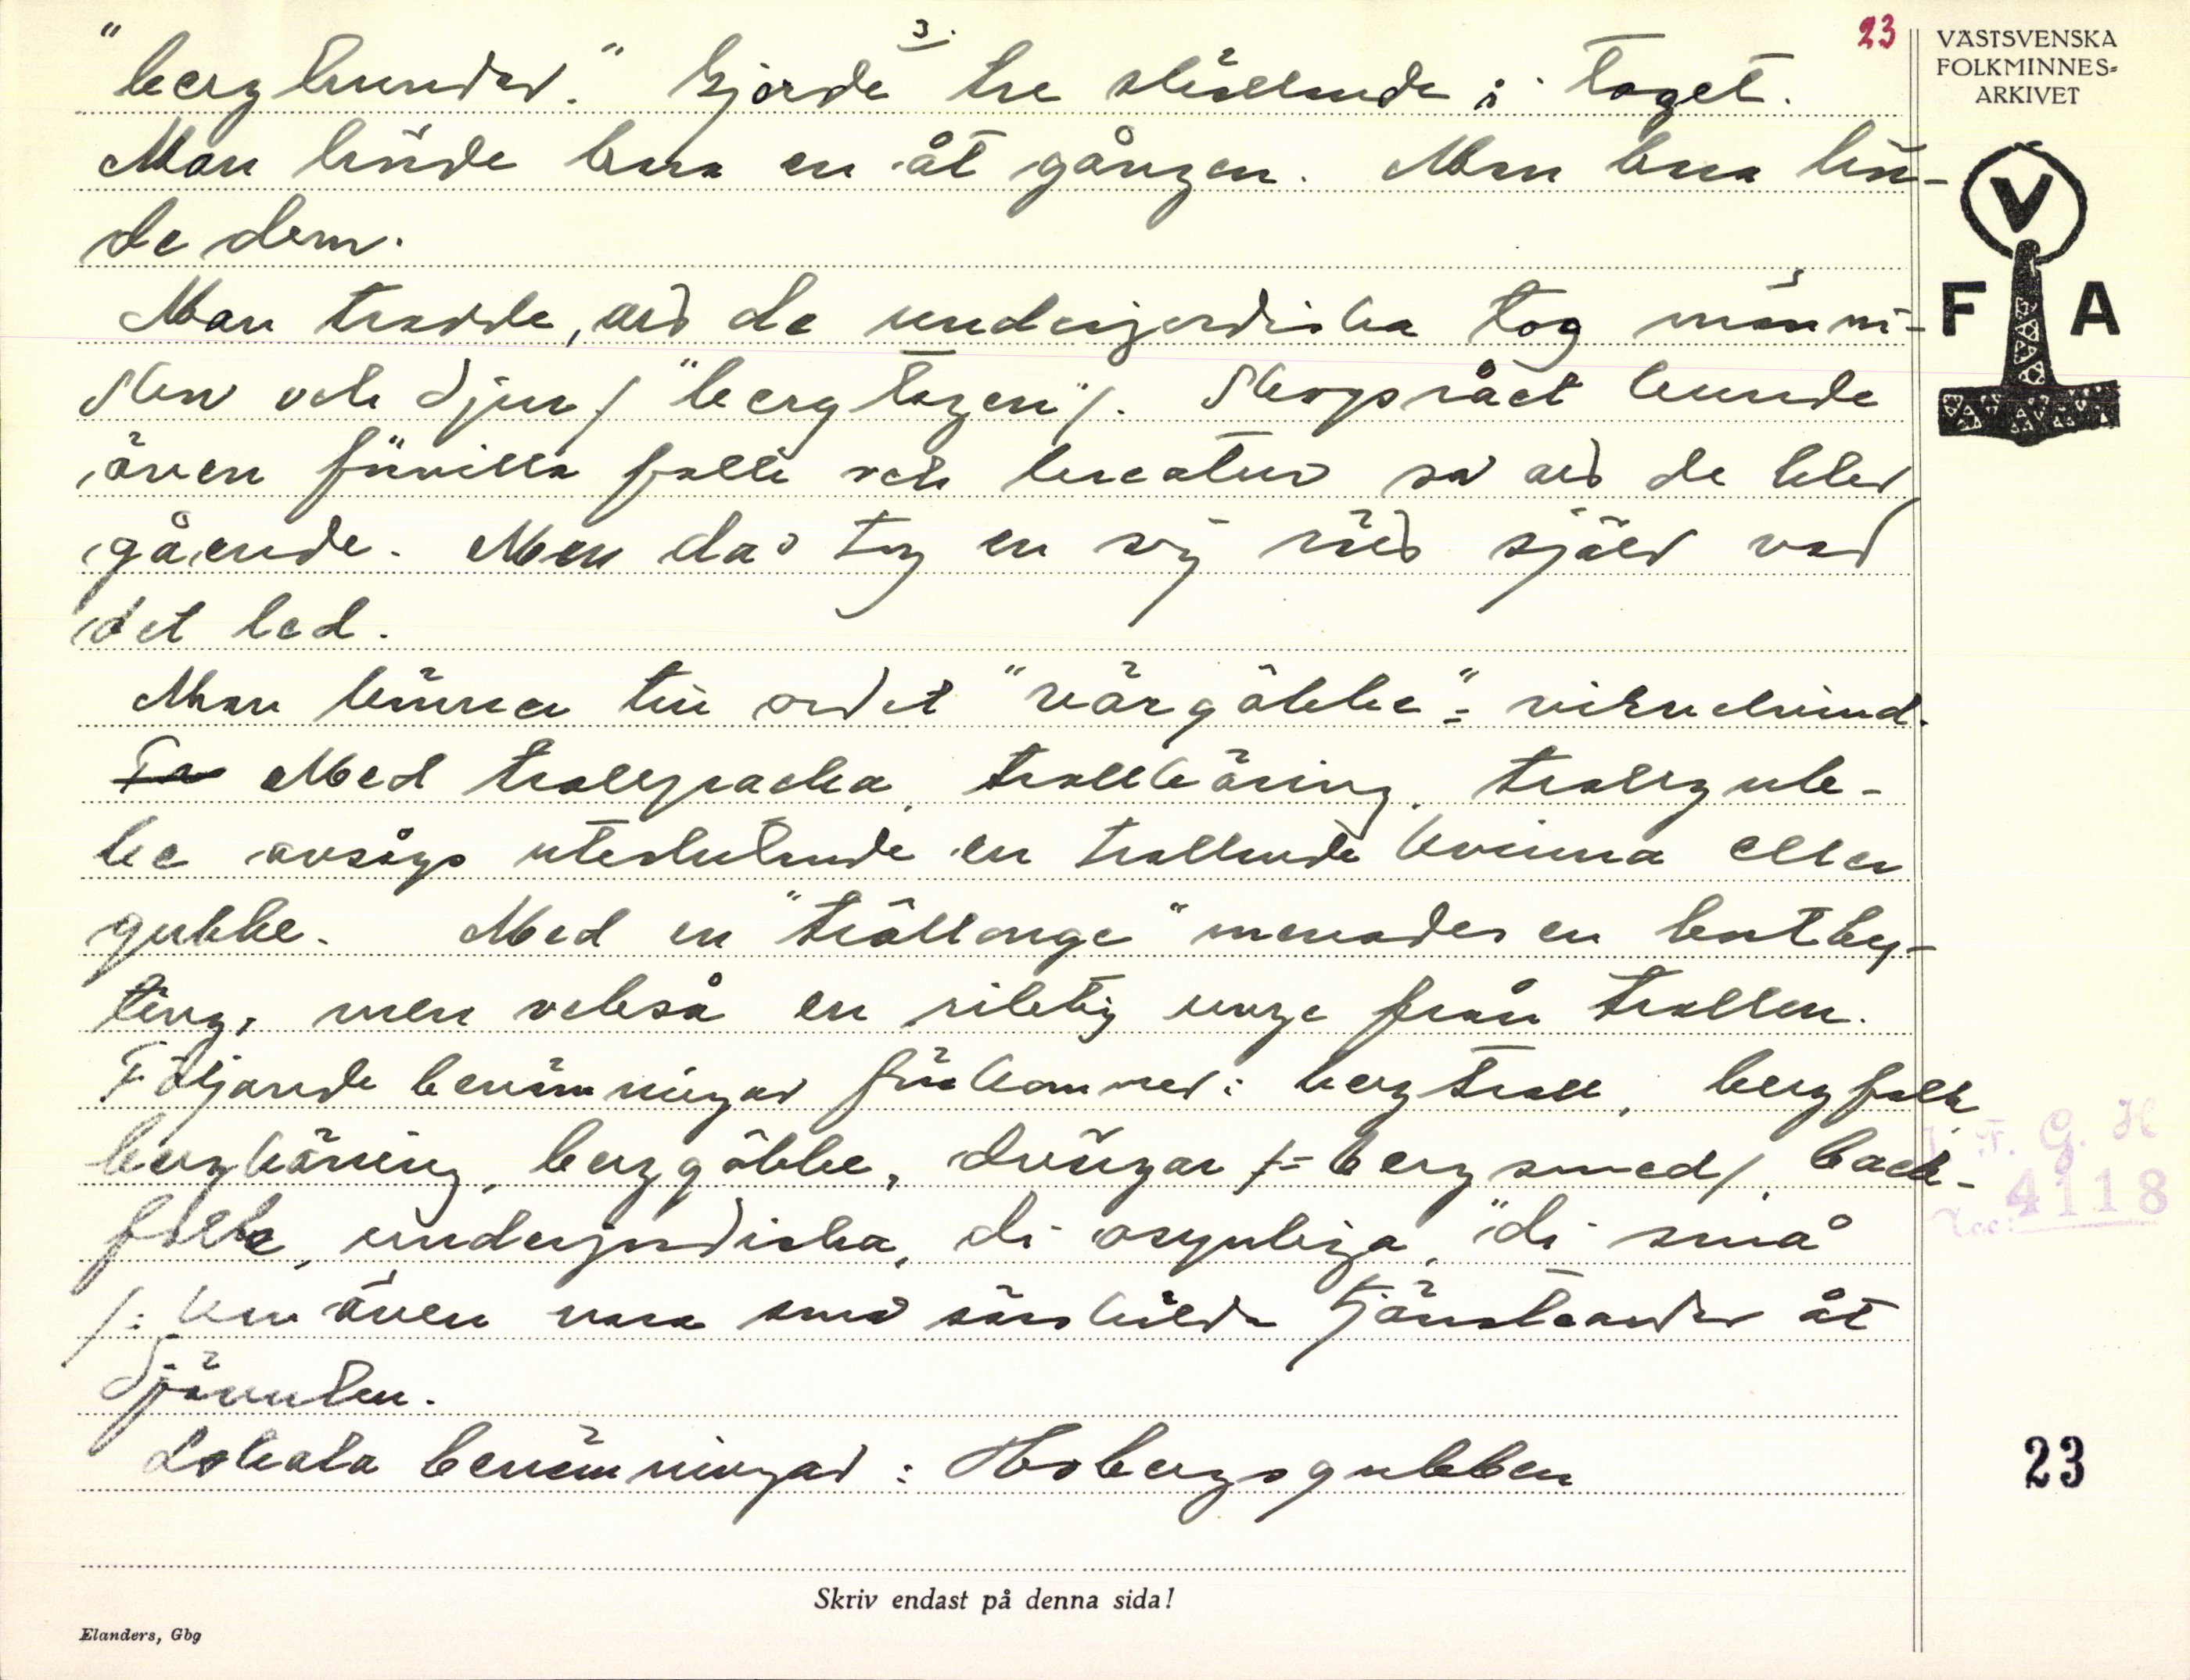 3.
23
"berghundar." Gjorde tre skällande i taget.
Man hörde bara en åt gången. Man bara hör-
de dem.
Man trodde, att de underjordiska tog männi-
skor och djur /"bergtagen"/. Skogsrået kunde
även förvilla folk och kreatur så att de blev
gående. Men då tog en sig rätt själv vad
det led.
Man känner till ordet "värgöbbe" = virvelvind.
Med trollpacka, trollkäring, trollgub-
be avsågs uteslutande en trollande kvinna eller
gubbe. Med en "trållonge" menades en bortby-
ting, men också en riktig unge från trollen.
Följande benämningar förkommer: bergtroll, bergfolk
bergkäring, berggöbbe, /= bergsmed/, back-
folk, underjordiska, di osynliga, "di små
/: kan även vara små särskilda tjänsteandar åt
djävulen.
Lokala benämningar: Hobergsgubben
VÄSTSVENSKA
FOLKMINNES-
ARKIVET
V
F A
I. F. G. H
Acc: 4118
23
Skriv endast på denna sida!
Elanders, Gbg